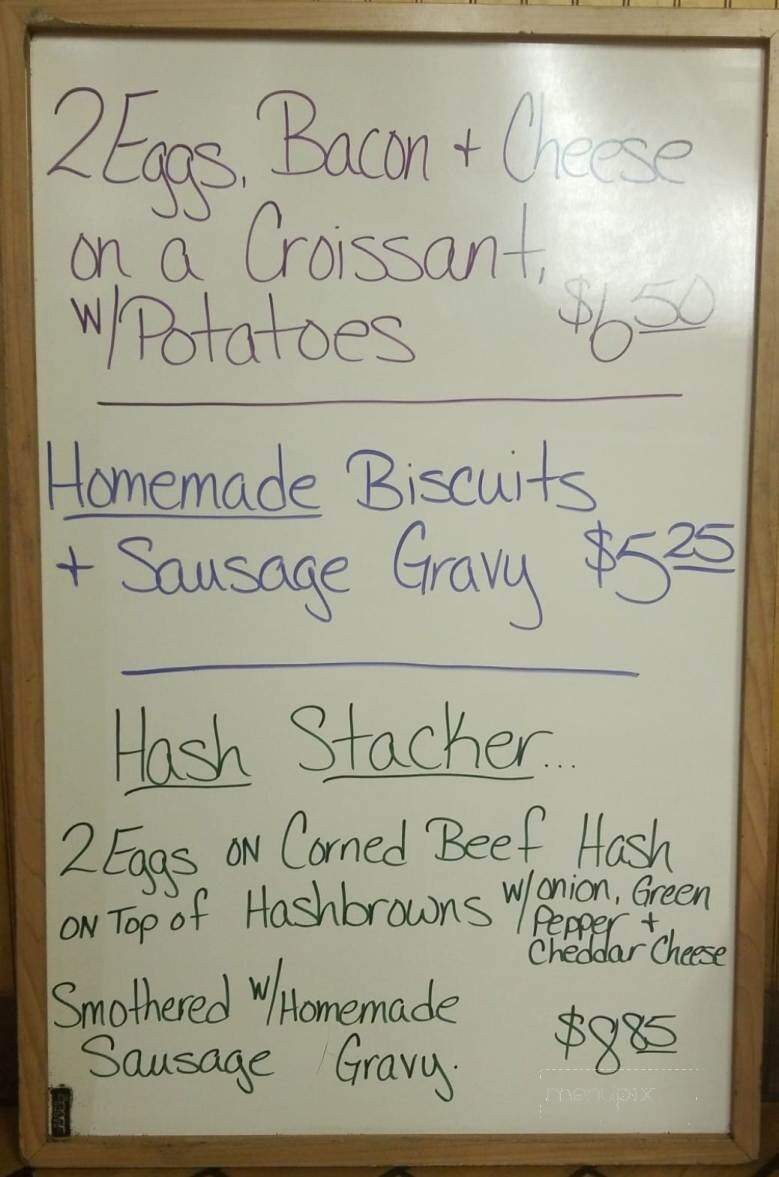 2 Eggs, Bacon + Cheese
on a Croissant,
w/Potatoes $6.50
Homemade Biscuits
+ Sausage Gravy $5.25
Hash Stacker...
2 Eggs ON Corned Beef Hash
ON Top of Hashbrowns w/onion, Green
Pepper +
Cheddar Cheese
Smothered w/Homemade
Sausage Gravy.
$8.85
menupix